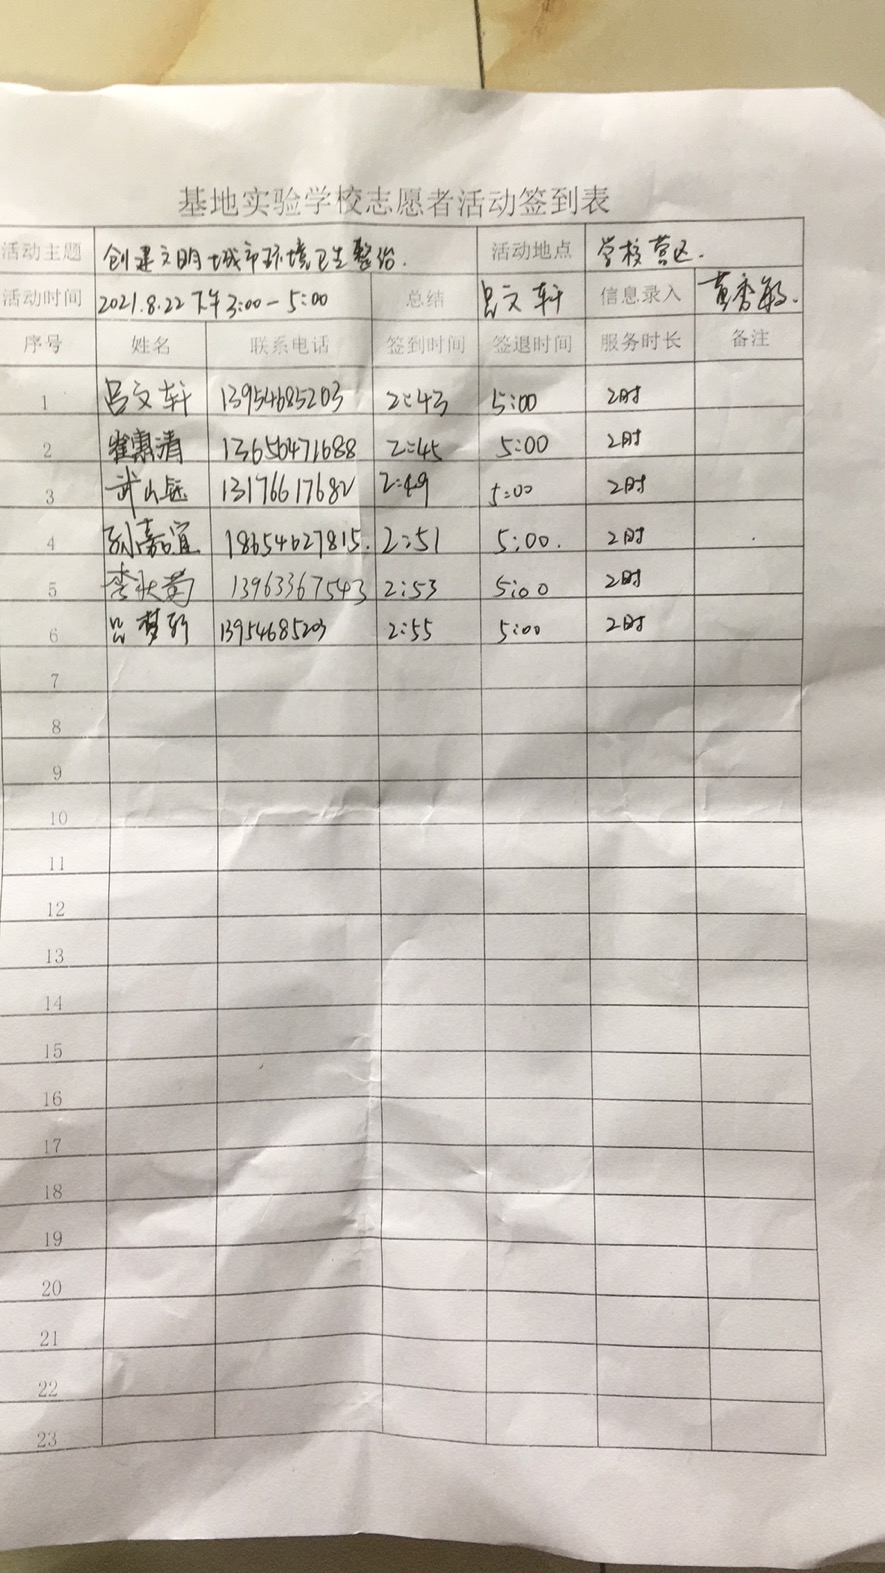 基地实验学校志愿者活动签到表
活动主题 创建文明城市环境卫生整治. 活动地点 学校营区.
活动时间 2021.8.22 下午3:00-5:00 总结 吕文轩 信息录入 黄秀敏.
序号 姓名 联系电话 签到时间 签退时间 服务时长 备注
1 吕文轩 13954685203 2:43 5:00 2时
2 崔惠清 13656471688 2:45 5:00 2时
3 武山 13176617682 2:49 5:00 2时
4 孙嘉宜 18654627815. 2:51 5:00. 2时
5 李秋菊 13963367543 2:53 5:00 2时
6 吕梦轩 13954685203 2:55 5:00 2时
7
8
9
10
11
12
13
14
15
16
17
18
19
20
21
22
23